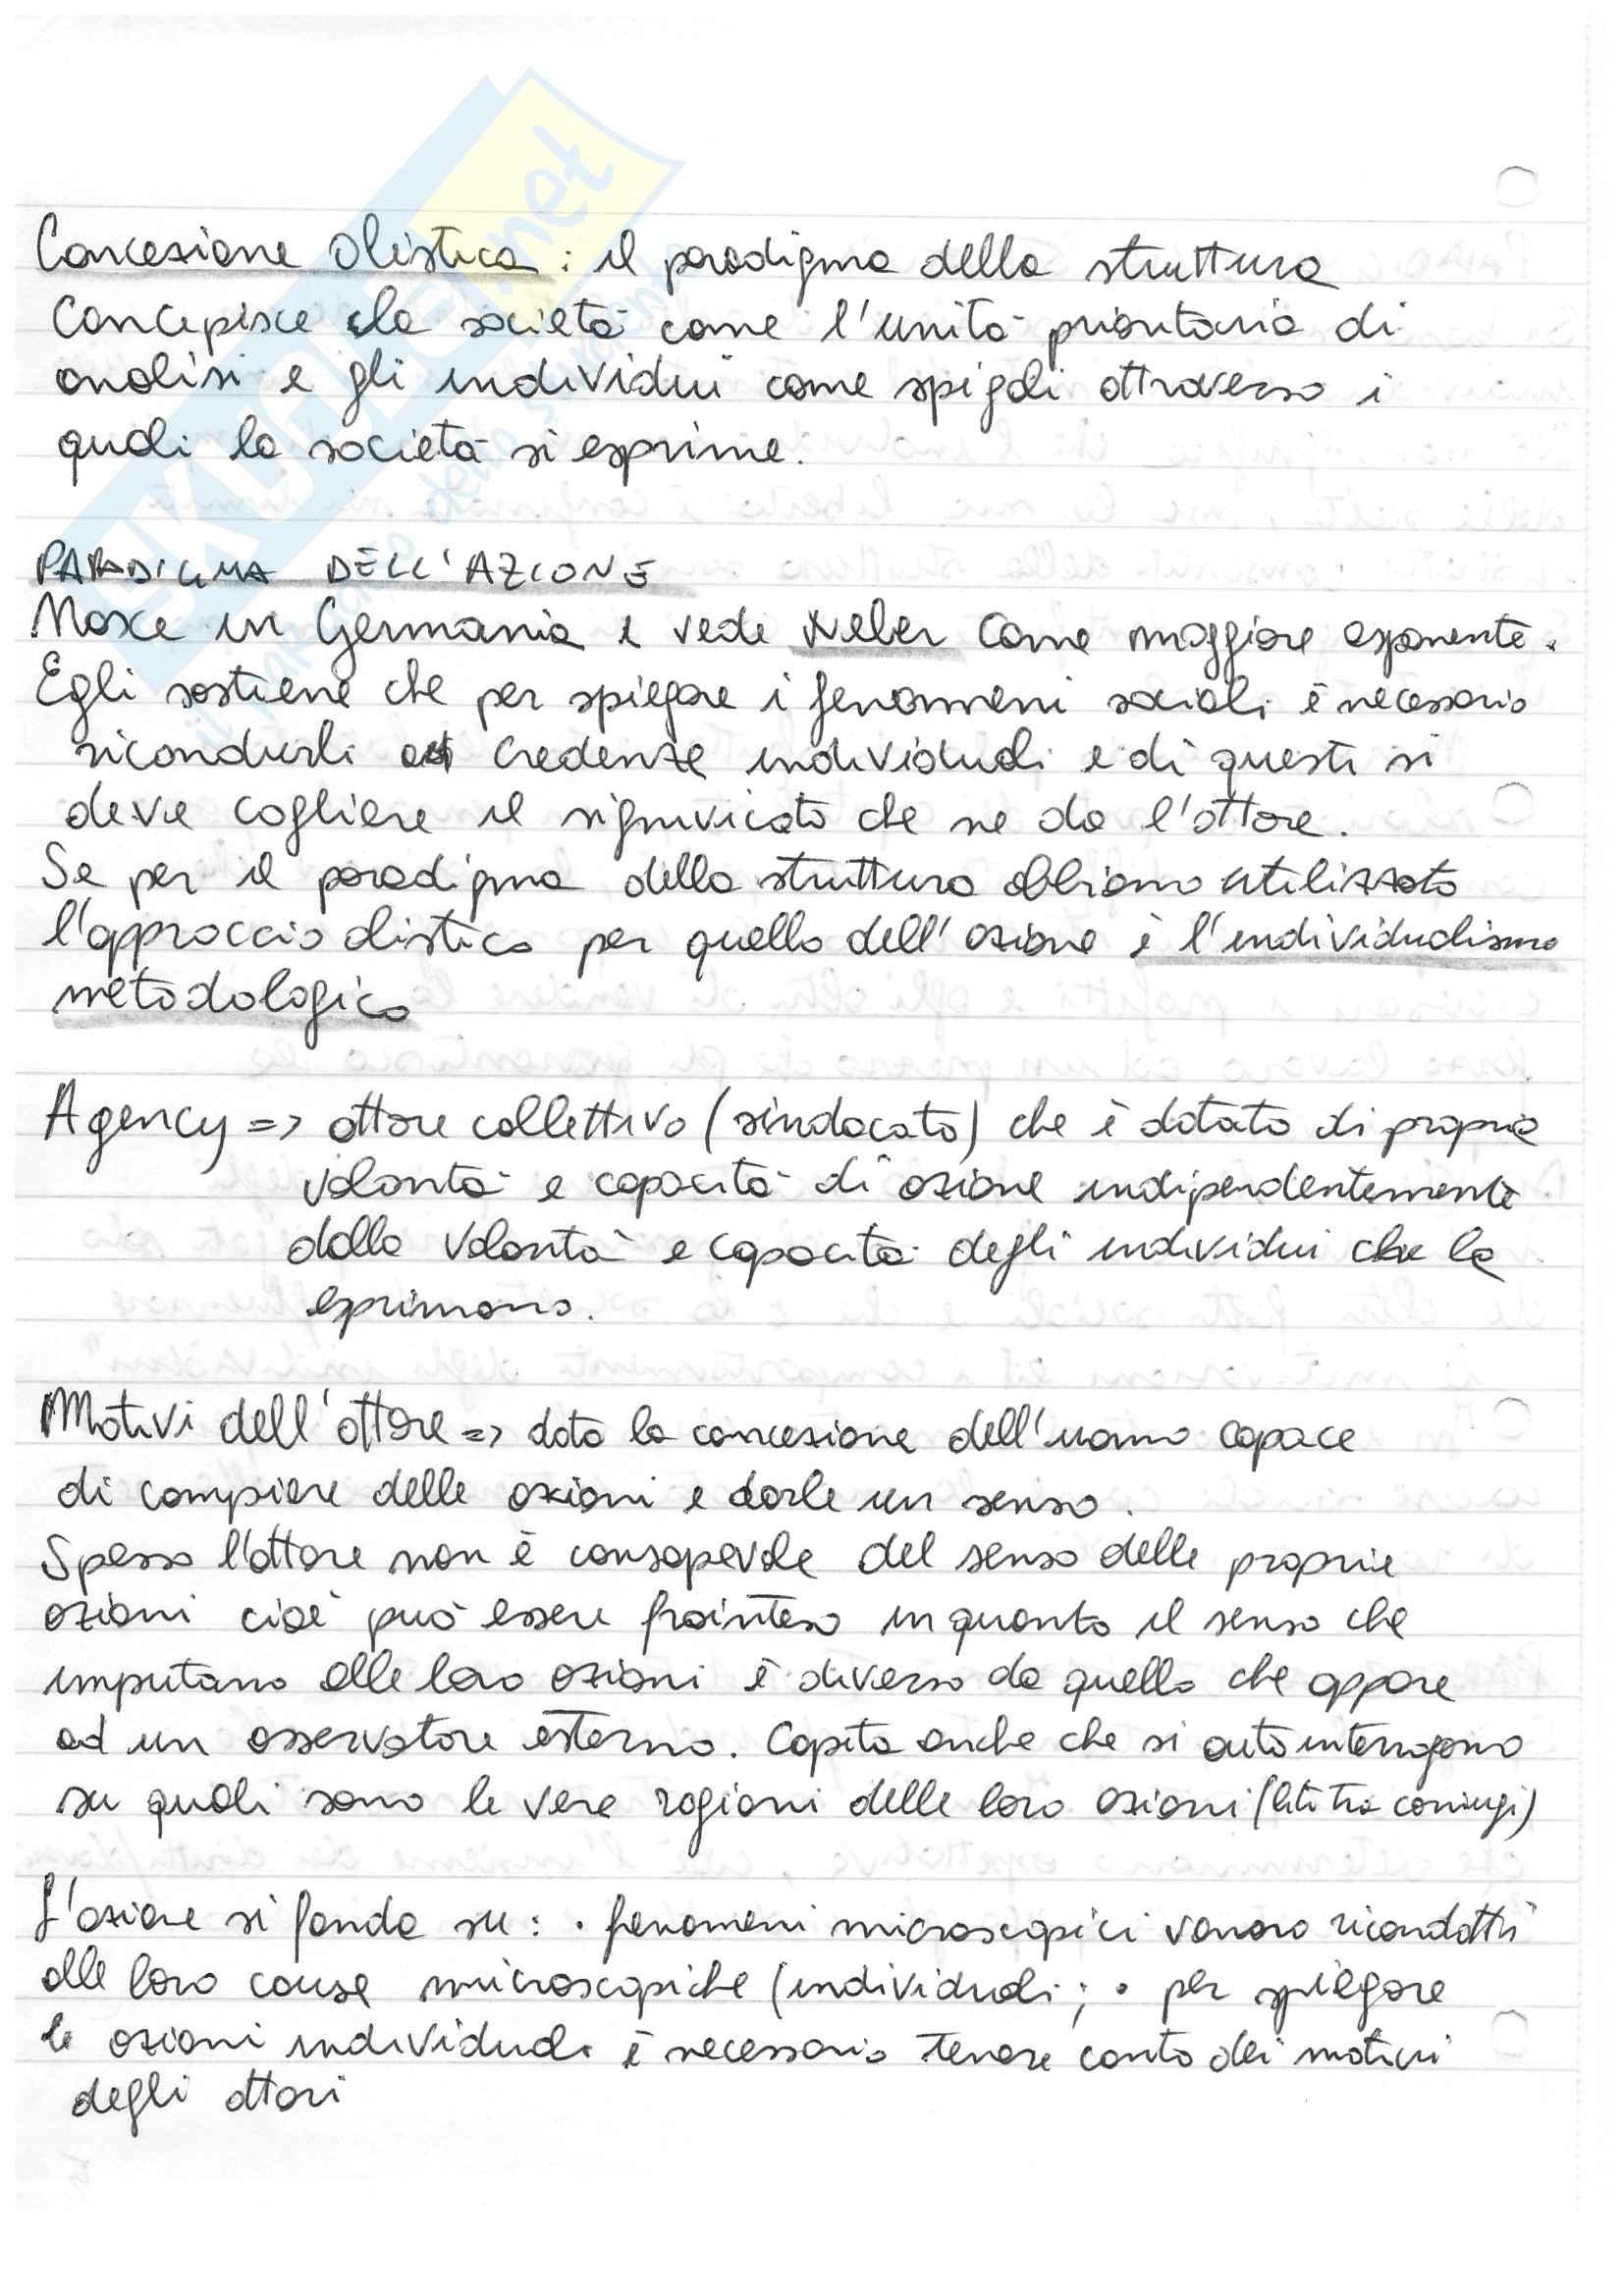 Concezione olistica : il paradigma della struttura
concepisce la società come l'unità prioritaria di
analisi e gli individui come spigoli attraverso i
quali la società si esprime.
PARADIGMA DELL'AZIONE
Nasce in Germania e vede Weber come maggiore esponente.
Egli sostiene che per spiegare i fenomeni sociali è necessario
ricondurli a credenze individuali e di questi si
deve cogliere il signivicato che ne da l'attore.
Se per il paradigma della struttura abbiamo utilizzato
l'approccio olistico per quello dell'azione è l'individualismo
metodologico
Agency => attore collettivo (sindacato) che è dotato di propria
volontà e capacità di azione indipendentemente
dalla volontà e capacità degli individui che la
esprimono.
Motivi dell'attore => data la concezione dell'uomo capace
di compiere delle azioni e darle un senso.
Spesso l'attore non è consapevole del senso delle proprie
azioni cioè può essere frainteso in quanto il senso che
imputano alle loro azioni è diverso da quello che appare
ad un osservatore esterno. Capita anche che si autointerrogano
su quali sono le vere ragioni delle loro azioni (liti tra coniugi)
L'azione si fonda su: • fenomeni microscopici vanno ricondotti
alle loro cause microscopiche (individuali; • per spiegare
le azioni individuali è necessario tenere conto dei motivi
degli attori
SKUOLA.net